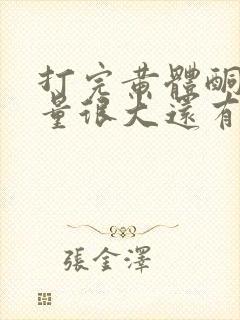 打完黄體酮
量很大還有
張金澤